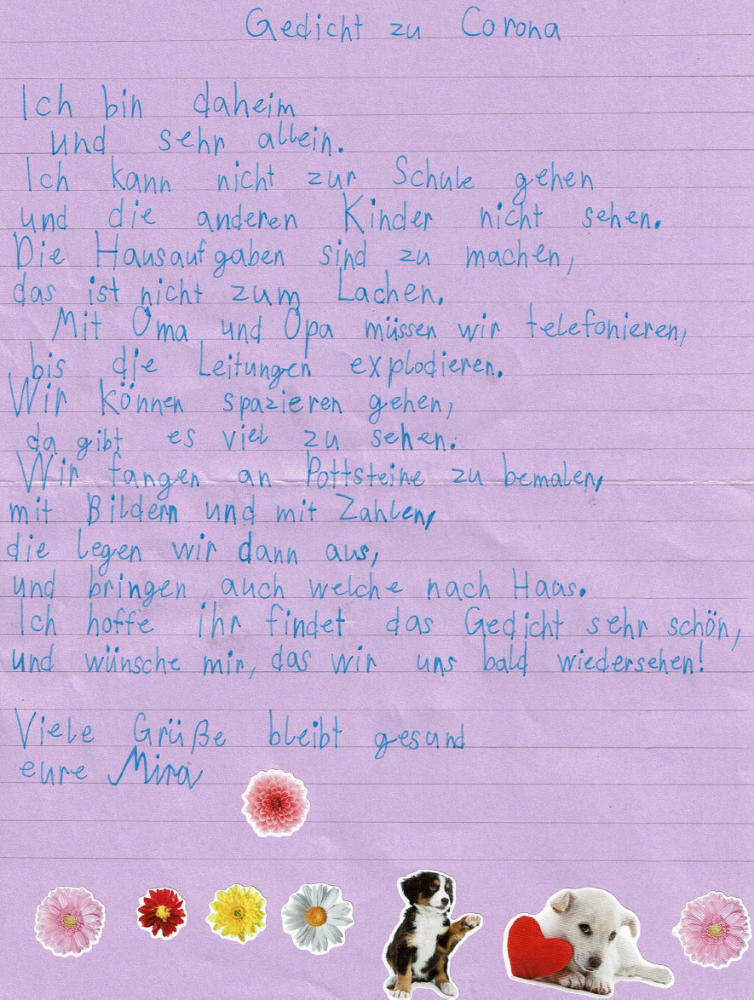 Gedicht zu Corona
Ich bin daheim
und sehr allein.
Ich kann nicht zur Schule gehen
und die anderen Kinder nicht sehen.
Die Hausaufgaben sind zu machen,
das ist nicht zum Lachen.
Mit Oma und Opa müssen wir telefonieren,
bis die Leitungen explodieren.
Wir können spazieren gehen,
da gibt es viel zu sehen.
Wir fangen an Pottsteine zu bemalen,
mit Bildern und mit Zahlen,
die legen wir dann aus,
und bringen auch welche nach Haus.
Ich hoffe ihr findet das Gedicht sehr schön,
und wünsche mir, das wir uns bald wiedersehen!
Viele Grüße bleibt gesund
eure Mira